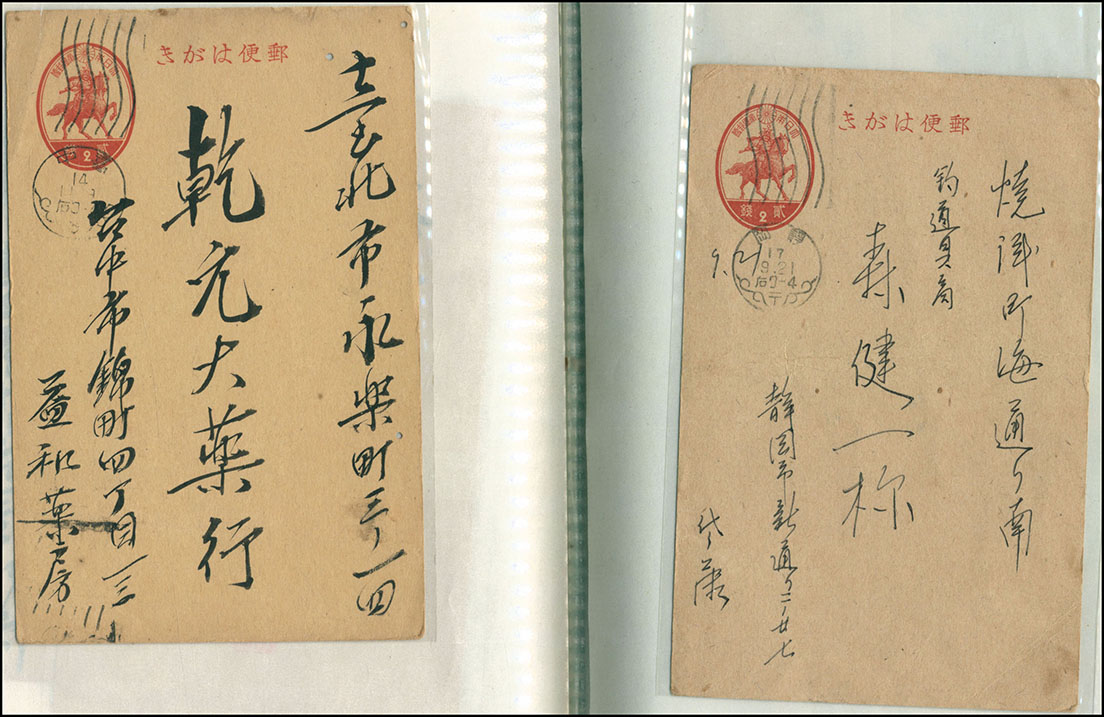 郵便はがき
臺北市永樂町三ノ一四
乾元大薬行
台中市錦町四丁目一三
益和薬房
貳 2
14
郵便はがき
焼津町海通り南
釣道具商
森健一様
静岡市新通り二ノ廿七
貳 2 錢
17
9.21
后0-4
9.21